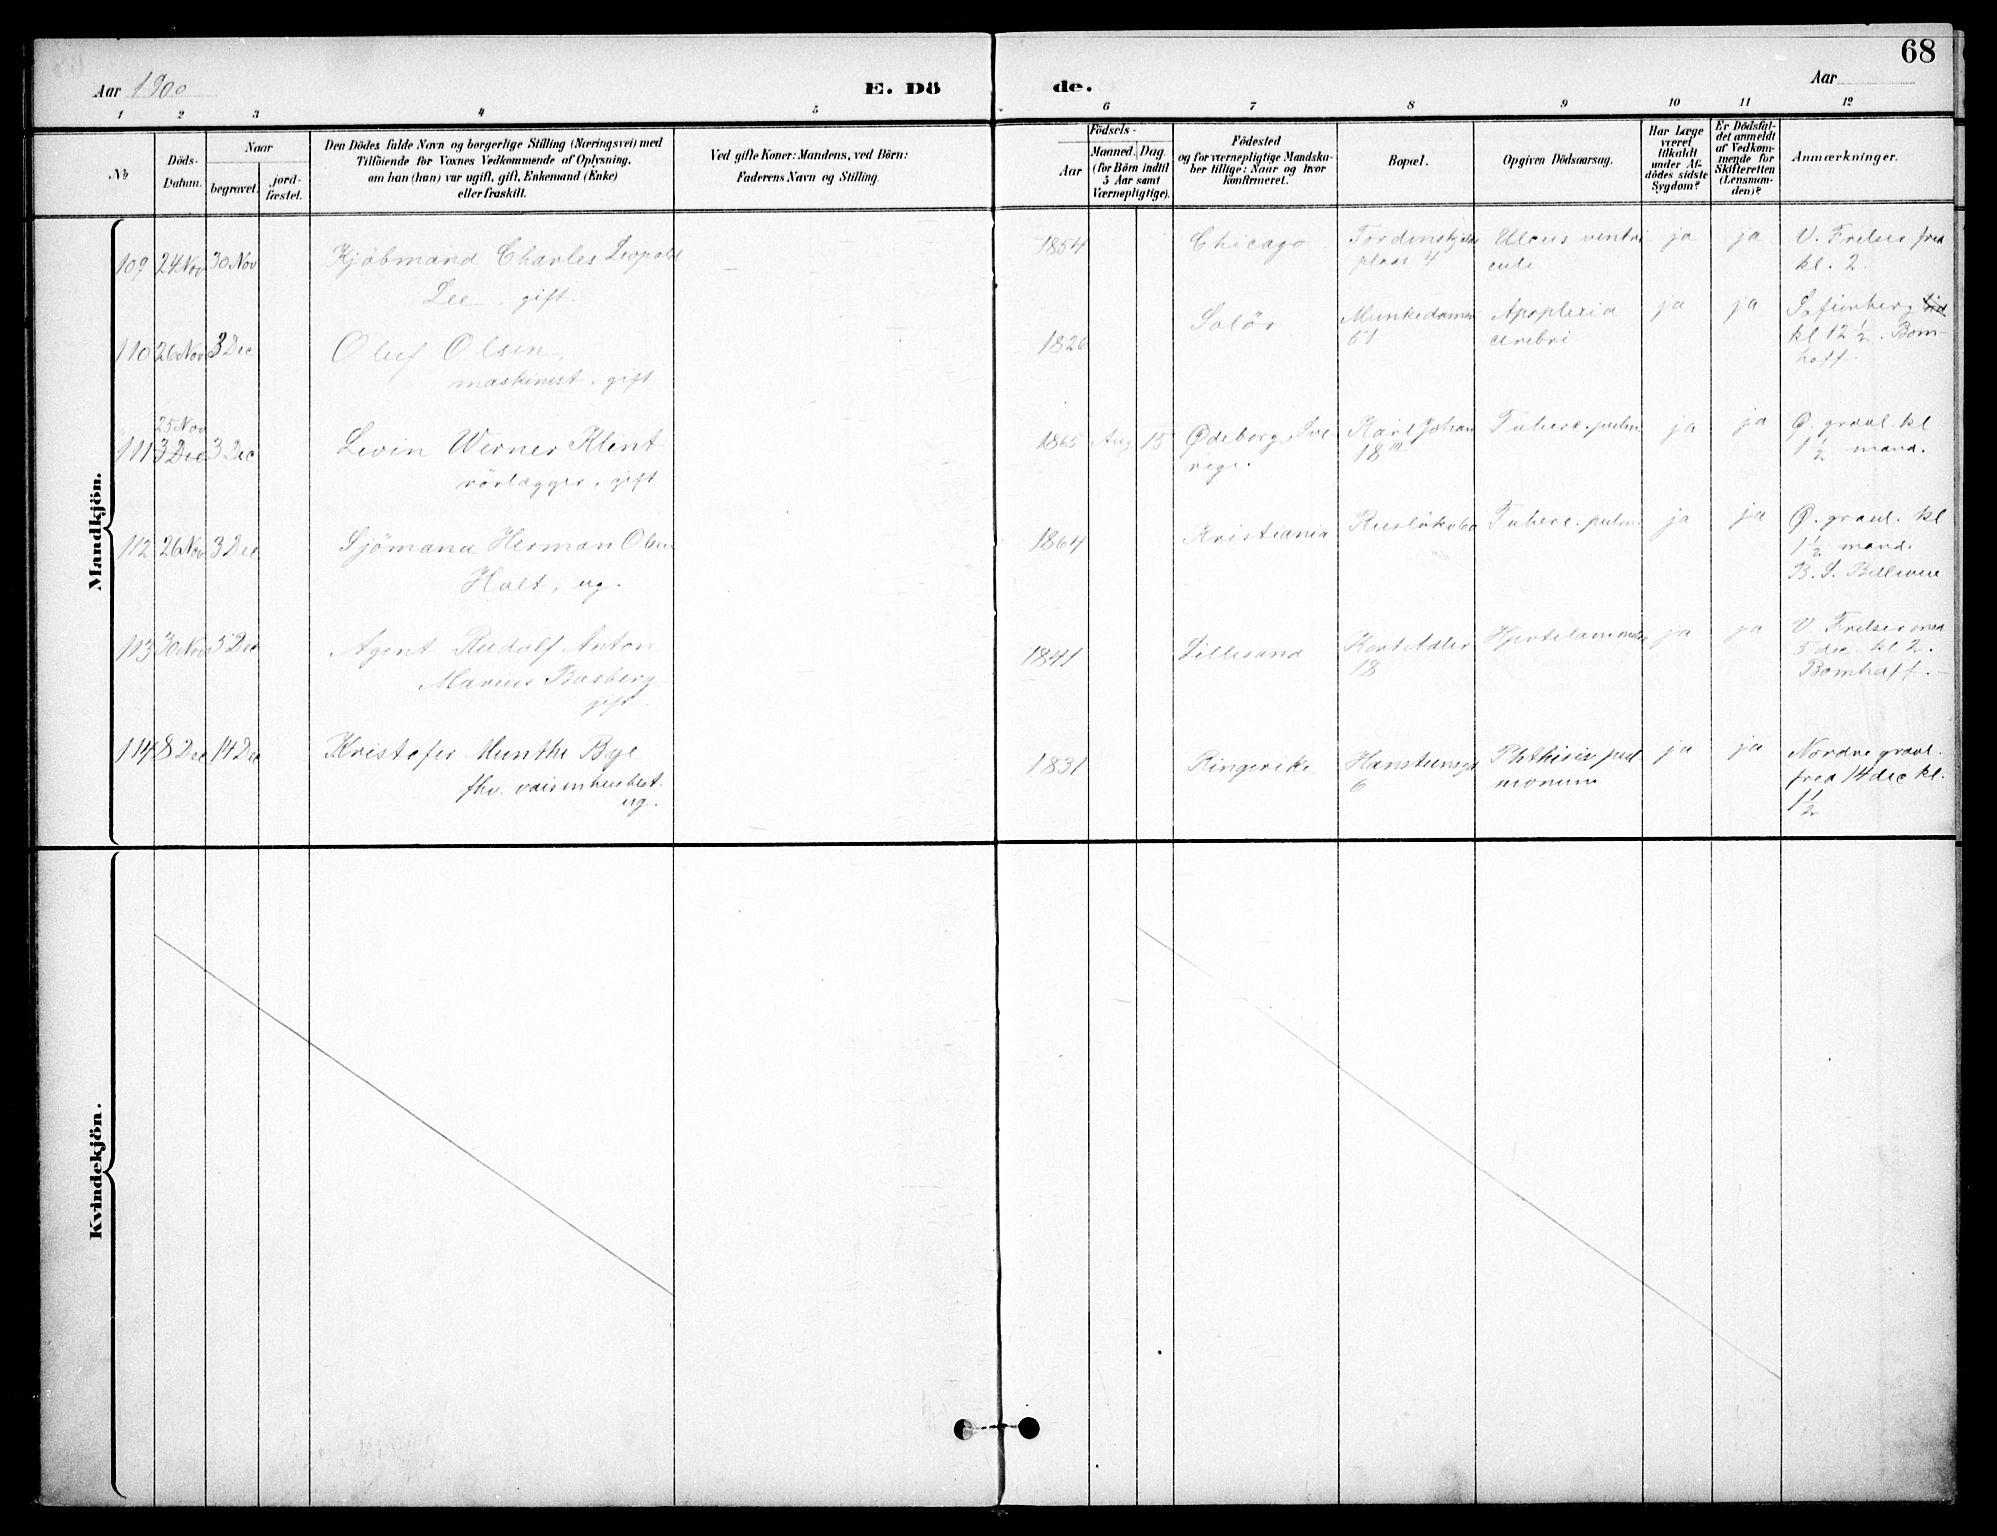 68
Aar 1900
E. Dö
de.
Aar
1 2 3 4 5 6 7 8 9 10 11 12
No
Döds-
Datum.
Naar
begravet.
jord-
fæstet.
Den Dödes fulde Navn og borgerlige Stilling (Næringsvei) med
Tilföiende for Voxnes Vedkommende af Oplysning,
om han (hun) var ugift, gift, Enkemand (Enke)
eller fraskilt.
Ved gifte Koner: Mandens, ved Börn:
Faderens Navn og Stilling.
Födsels-
Aar
Maaned. Dag.
(for Börn indtil
5 Aar samt
Værnepligtige).
Födested
og for værnepligtige Mandska-
ber tillige: Naar og hvor
konfirmeret.
Bopæl.
Opgiven Dödsaarsag.
Har Læge
været
tilkaldt
under Af-
dödes sidste
Sygdom?
Er Dödsfal-
det anmeldt
af Vedkom-
mende for
Skifteretten
(Lensman-
den)?
Anmærkninger.
Mandkjön.
109 24 Nov 30 Nov Kjöbmand Charles Leopold
Lee, gift.
1854 Chicago Tordenskjolds
plads 4 Ulcus ventri
culi ja ja V. Frelser fred
kl. 2.
110 26 Nov 3 Dec Oluf Olsen,
maskinist, gift
1826 Solör Munkedamsv
51 Apoplexia
cerebri ja ja
kl 12 1/2. Bom-
hoff.
25 Nov
111 3 Dec 3 Dec Levin Werner Klint
rörlægger, gift
1865 Aug 15 Ødeborg, Sve-
rige. Karl Johan
18 Tuberc. pulm. ja ja Ø. gravl. kl
1 1/2 mand.
112 26 Nov 3 Dec Sjömand Herman Olsen
Holt, ug.
1864 Kristiania Ruslökv Tuberc. pulm. ja ja Ø. gravl. kl
1 1/2 mand.
B. S.
113 30 Nov 5 Dec Agent Rudolf Anton
Marius Basberg
gift.
1841 Lillesand Kort Adler
18 ja ja V. Frelser ons
5 dec kl 2.
Bomhoff.
114 8 Dec 14 Dec Kristofer Munthe Bye
fhv. vaisenhusbest.
ug.
1831 Ringerike Hansteensgd
6 Phthisis pul-
monum ja ja Nordre gravl.
fred 14 dec kl.
1 1/2
Kvindekjön.